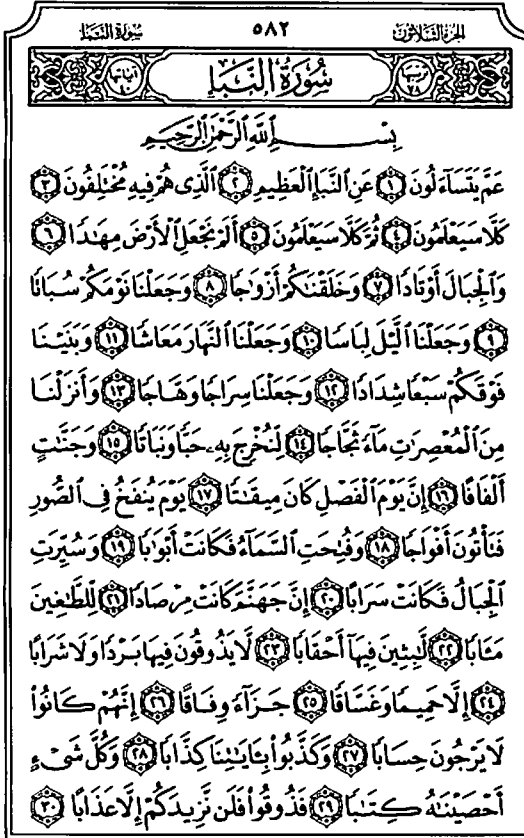 سُورَةُ النَّبَإِ ٥٨٢ الجُزْءُ الثَّلَاثُونَ
ترتيبها ٧٨ سُورَةُ النَّبَإِ آياتها ٤٠
بِسْمِ ٱللَّهِ ٱلرَّحْمَٰنِ ٱلرَّحِيمِ
عَمَّ يَتَسَآءَلُونَ ١ عَنِ ٱلنَّبَإِ ٱلْعَظِيمِ ٢ ٱلَّذِى هُمْ فِيهِ مُخْتَلِفُونَ ٣
كَلَّا سَيَعْلَمُونَ ٤ ثُمَّ كَلَّا سَيَعْلَمُونَ ٥ أَلَمْ نَجْعَلِ ٱلْأَرْضَ مِهَٰدًا ٦
وَٱلْجِبَالَ أَوْتَادًا ٧ وَخَلَقْنَٰكُمْ أَزْوَٰجًا ٨ وَجَعَلْنَا نَوْمَكُمْ سُبَاتًا
٩ وَجَعَلْنَا ٱلَّيْلَ لِبَاسًا ١٠ وَجَعَلْنَا ٱلنَّهَارَ مَعَاشًا ١١ وَبَنَيْنَا
فَوْقَكُمْ سَبْعًا شِدَادًا ١٢ وَجَعَلْنَا سِرَاجًا وَهَّاجًا ١٣ وَأَنزَلْنَا
مِنَ ٱلْمُعْصِرَٰتِ مَآءً ثَجَّاجًا ١٤ لِّنُخْرِجَ بِهِۦ حَبًّا وَنَبَاتًا ١٥ وَجَنَّٰتٍ
أَلْفَافًا ١٦ إِنَّ يَوْمَ ٱلْفَصْلِ كَانَ مِيقَٰتًا ١٧ يَوْمَ يُنفَخُ فِى ٱلصُّورِ
فَتَأْتُونَ أَفْوَاجًا ١٨ وَفُتِحَتِ ٱلسَّمَآءُ فَكَانَتْ أَبْوَٰبًا ١٩ وَسُيِّرَتِ
ٱلْجِبَالُ فَكَانَتْ سَرَابًا ٢٠ إِنَّ جَهَنَّمَ كَانَتْ مِرْصَادًا ٢١ لِّلطَّٰغِينَ
مَـَٔابًا ٢٢ لَّٰبِثِينَ فِيهَآ أَحْقَابًا ٢٣ لَّا يَذُوقُونَ فِيهَا بَرْدًا وَلَا شَرَابًا
٢٤ إِلَّا حَمِيمًا وَغَسَّاقًا ٢٥ جَزَآءً وِفَاقًا ٢٦ إِنَّهُمْ كَانُوا۟
لَا يَرْجُونَ حِسَابًا ٢٧ وَكَذَّبُوا۟ بِـَٔايَٰتِنَا كِذَّابًا ٢٨ وَكُلَّ شَىْءٍ
أَحْصَيْنَٰهُ كِتَٰبًا ٢٩ فَذُوقُوا۟ فَلَن نَّزِيدَكُمْ إِلَّا عَذَابًا ٣٠